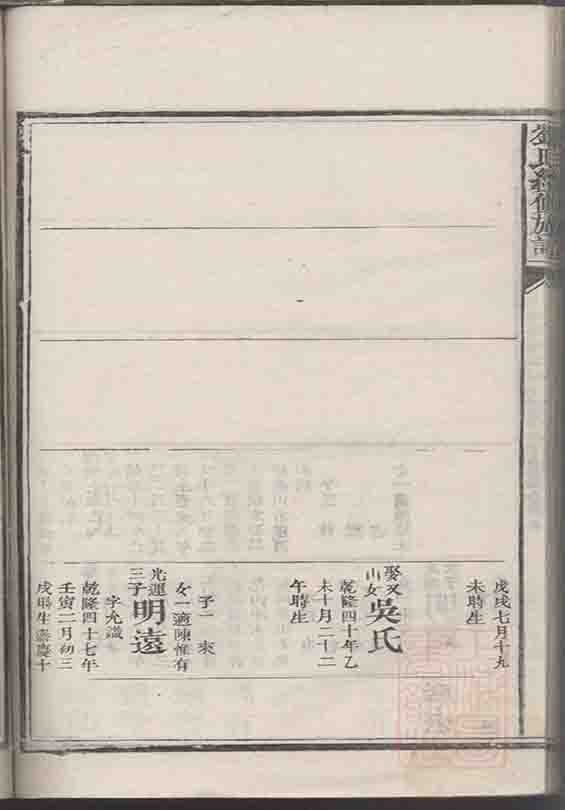 氏續修族譜
戊戌七月十九
未時生
娶又
山女
吳氏
乾隆四十年乙
未十月二十二
午時生
子一 來
女一適陳惟有
光運
三子
明遠
字允識
乾隆四十七年
壬寅二月初三
戌時生嘉慶十